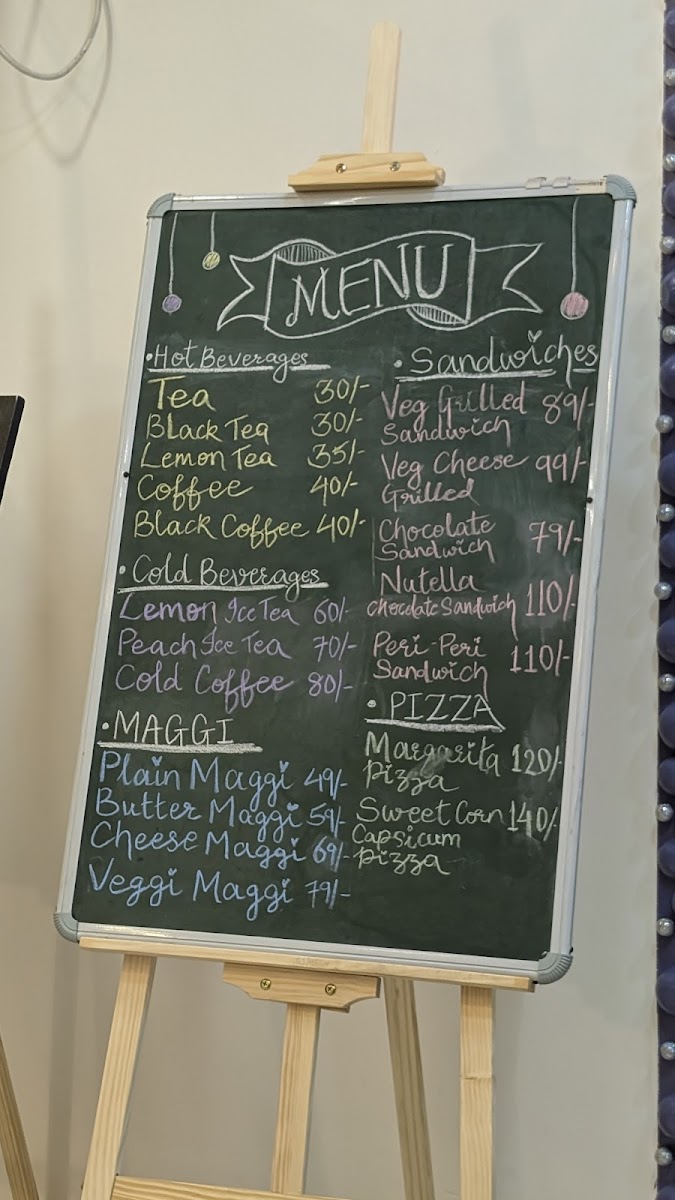 MENU
• Hot Beverages
Tea 30/-
Black Tea 30/-
Lemon Tea 35/-
Coffee 40/-
Black Coffee 40/-
• Cold Beverages
Lemon Ice Tea 60/-
Peach Ice Tea 70/-
Cold Coffee 80/-
• MAGGI
Plain Maggi 49/-
Butter Maggi 59/-
Cheese Maggi 69/-
Veggi Maggi 79/-
• Sandwiches
Veg Grilled 89/-
Sandwich
Veg Cheese 99/-
Grilled
Chocolate 79/-
Sandwich
Nutella
chocolate Sandwich 110/-
Peri-Peri 110/-
Sandwich
• PIZZA
Margarita 120/-
pizza
Sweet Corn 140/-
Capsicum
pizza